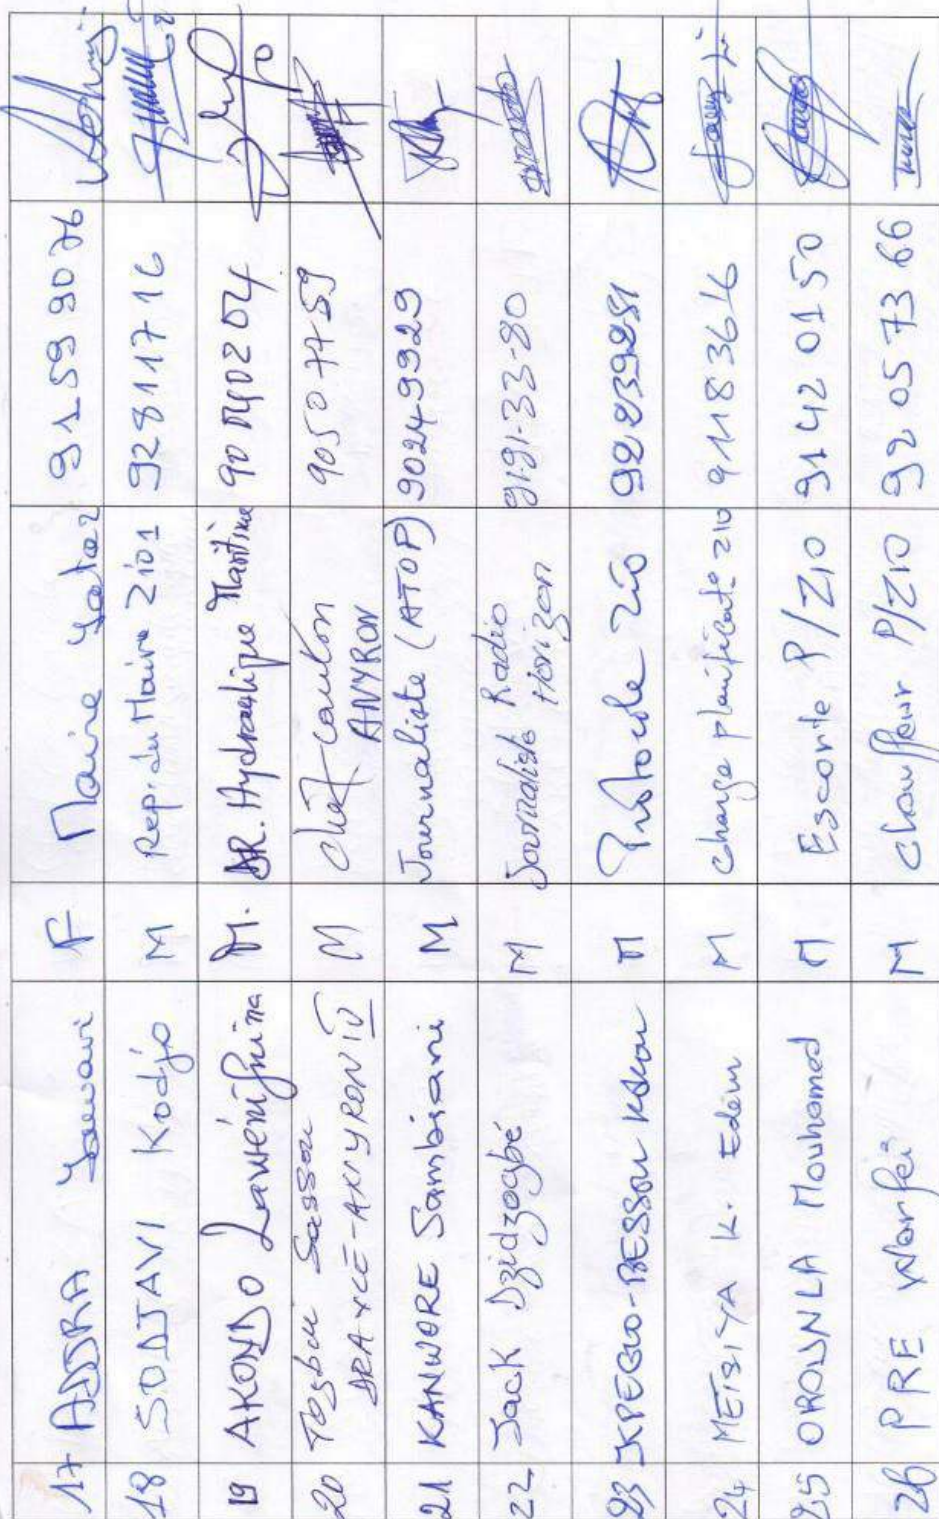 17 ADDRA F Maire 91599076
18 SODJAVI Kodjo M Rep. du Maire Zio1 92811716
19 AKONDO M. DR. Hydraulique Maritime 90040204
20 Togbui M Chef-canton ANYRON 90507759
21 KANWORE Sambiani M Journaliste (ATOP) 90249929
22 Jack Dzidzogbé M Journaliste Radio Horizon 9191-33-80
23 M Protocole Zio
24 METSIYA K. Edem M Chargé planificat° Zio 91183616
25 OROUNLA Mouhamed M Escorte P/ZIO 91420150
26 PRE M Chauffeur P/ZIO 92057366